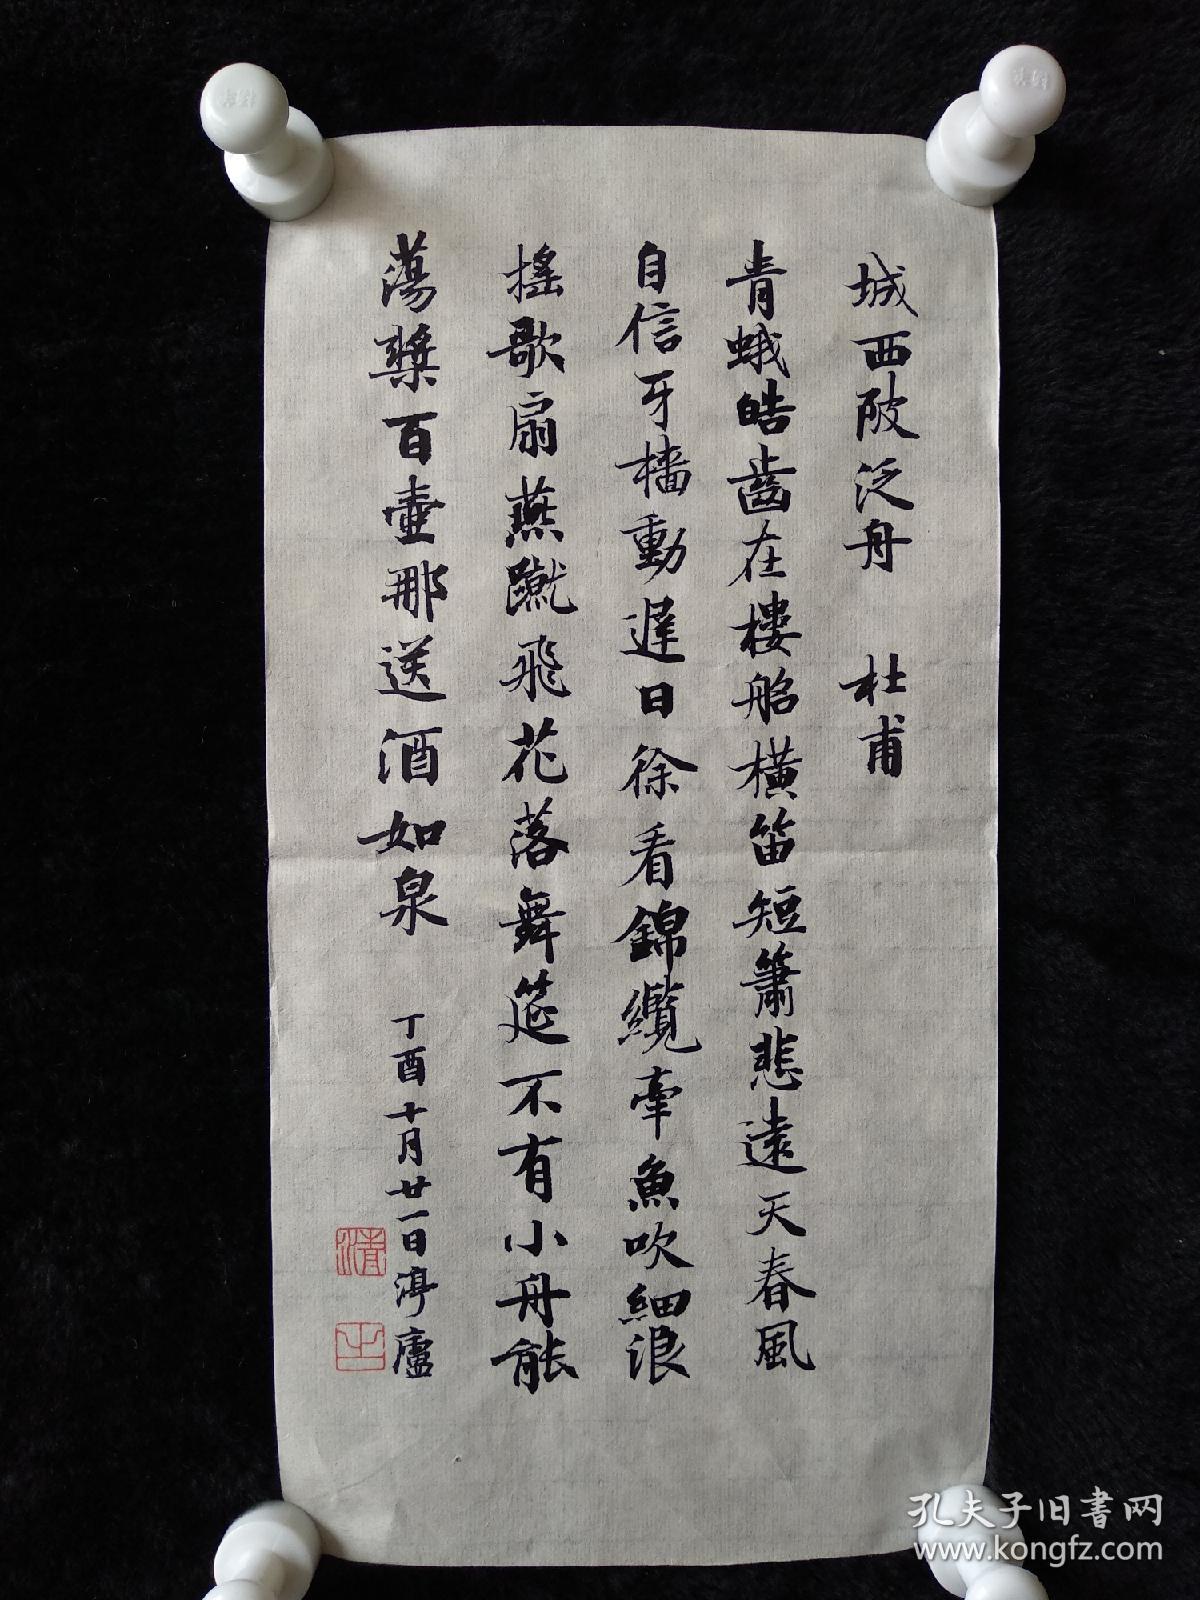 城西陂泛舟 杜甫
青蛾皓齒在樓船橫笛短簫悲遠天春風
自信牙檣動遲日徐看錦纜牽魚吹細浪
搖歌扇燕蹴飛花落舞筵不有小舟能
蕩槳百壺那送酒如泉
丁酉十月廿一日渟廬
孔夫子旧書网
www.kongfz.com